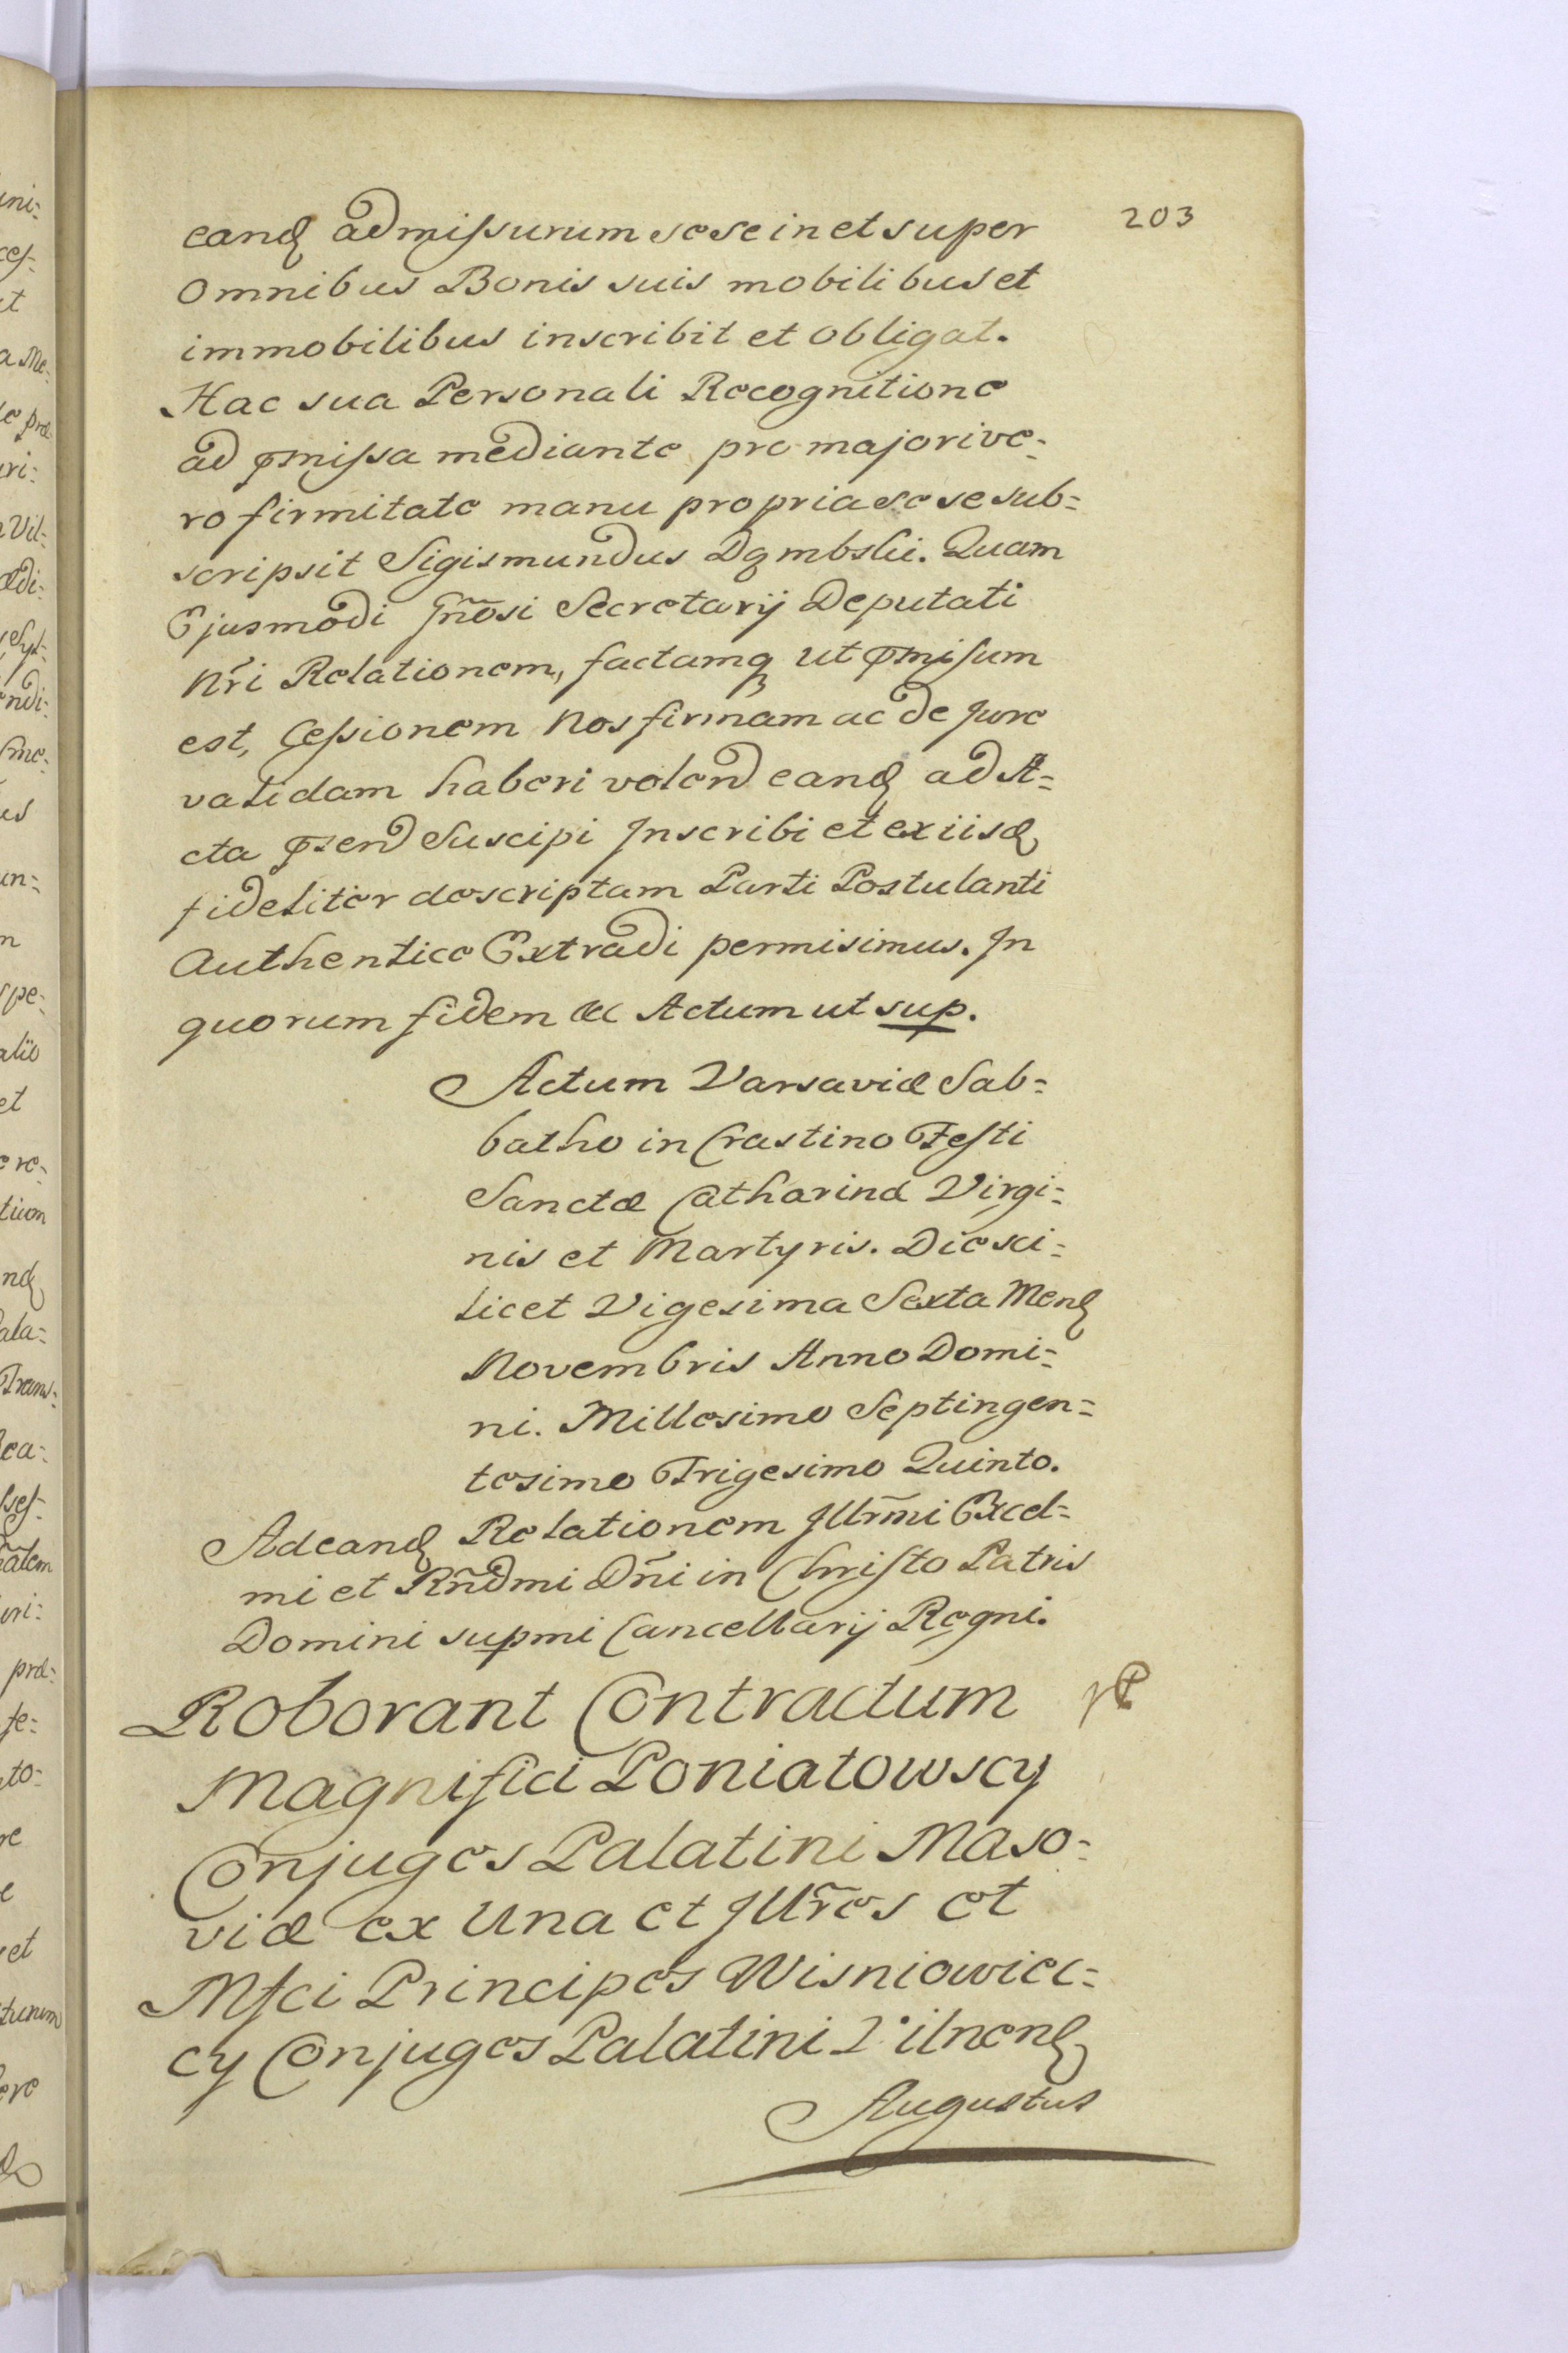 203
eand admissurum sese in et super
Omnibus Bonis suis mobilibus et
immobilibus inscribit et obligat.
Hac sua Personali Recognitione
ad pmissa mediante pro majori ve=
ro firmitate manu propria se se sub=
scripsit Sigismundus Dąmbski. Quam
Ejusmodi Gñosi Secretarij Deputati
Nr̃i Relationem, factamq ut pmisum
est, Cessionem Nos firmam ac de Jure
validam haberi volend eand ad A=
cta pzend Suscipi Inscribi et ex iisd
fideliter descriptam Parti Postulanti
Authentice Extradi permisimus. In
quorum fidem &c Actum ut sup.
Actum Varsaviæ Sab=
batho in Crastino Festi
Sanctæ Catharinæ Virgi=
nis et Martyris. Die sci=
licet Vigesima Sexta Mens
Novembris Anno Domi=
ni. Millesimo Septingen=
tesimo Trigesimo Quinto.
Ad eand Relationem Jllr̃mi Excel=
mi et Rñdmi Dñi in Christo Patris
Domini supmi Cancellarij Regni.
Roborant Contractum
Magnifici Poniatowscy
Conjuges Palatini Maso=
viæ ex Una et Jllr̃es et
Mfci Principes Wisniowiec=
cy Conjuges Palatini Vilnens
Augustus